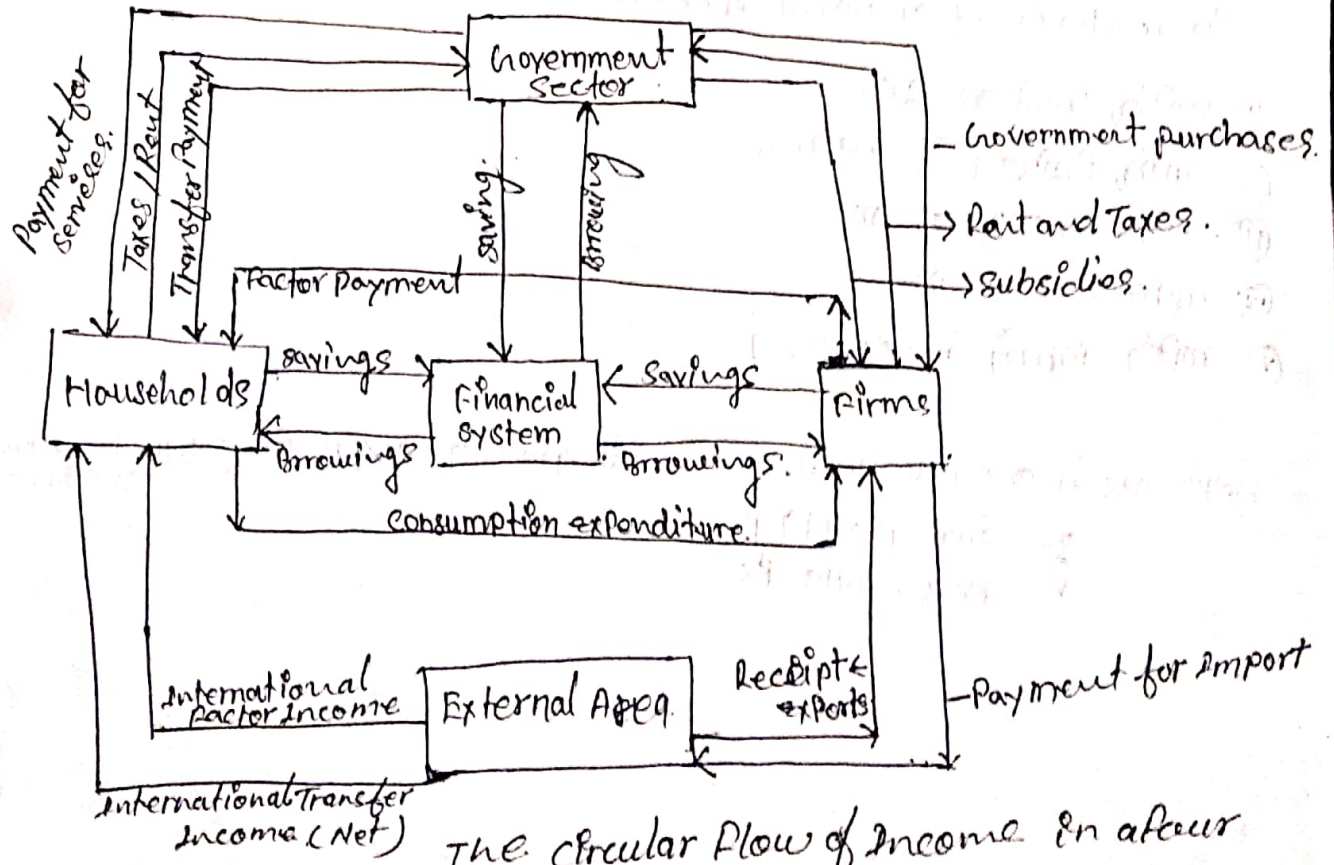 Government
Sector
Payment for
Serveses.
Taxes/Rent
Transfer Payment
Saving.
Brrowing
- Government purchases.
Rent and Taxes.
Subsidies.
Factor payment
Households
Savings
Brrowings
Financial
System
Savings
Brrowings.
Firms
Consumption expenditure.
International
Factor Income
External Area
Receipt
exports
Payment for Import
International Transfer
Income (Net)
The Circular Flow of Income in a four